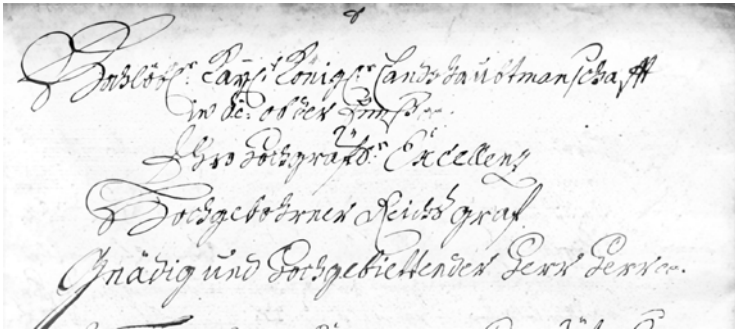 Hochlöbl: Kayl: Königl: Landshaubtmanschafft
in Ö: ob der Ennß
Ihro Hochgräfl: Excellenz
Hochgebohrner Reichs graf
Gnädig und Hochgebiettender Herr Herr